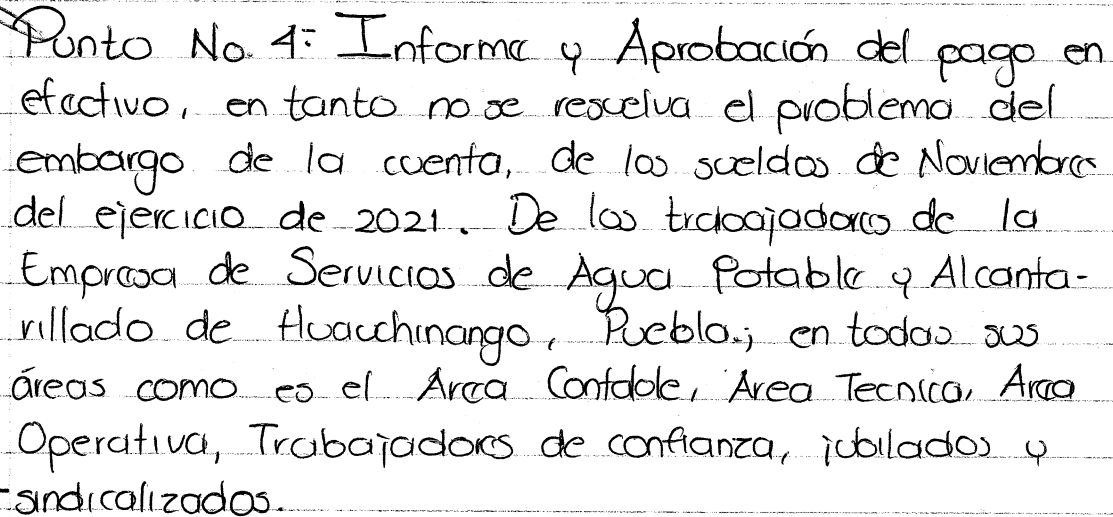 Punto No. 4: Informe y Aprobación del pago en
efectivo, en tanto no se resuelva el problema del
embargo de la cuenta, de los sueldos de Noviembre
del ejercicio de 2021. De los trabajadores de la
Empresa de Servicios de Agua Potable y Alcanta-
rillado de Huauchinango, Puebla.; en todas sus
áreas como es el Area Contable, Area Tecnica, Area
Operativa, Trabajadores de confianza, jubilados y
sindicalizados.